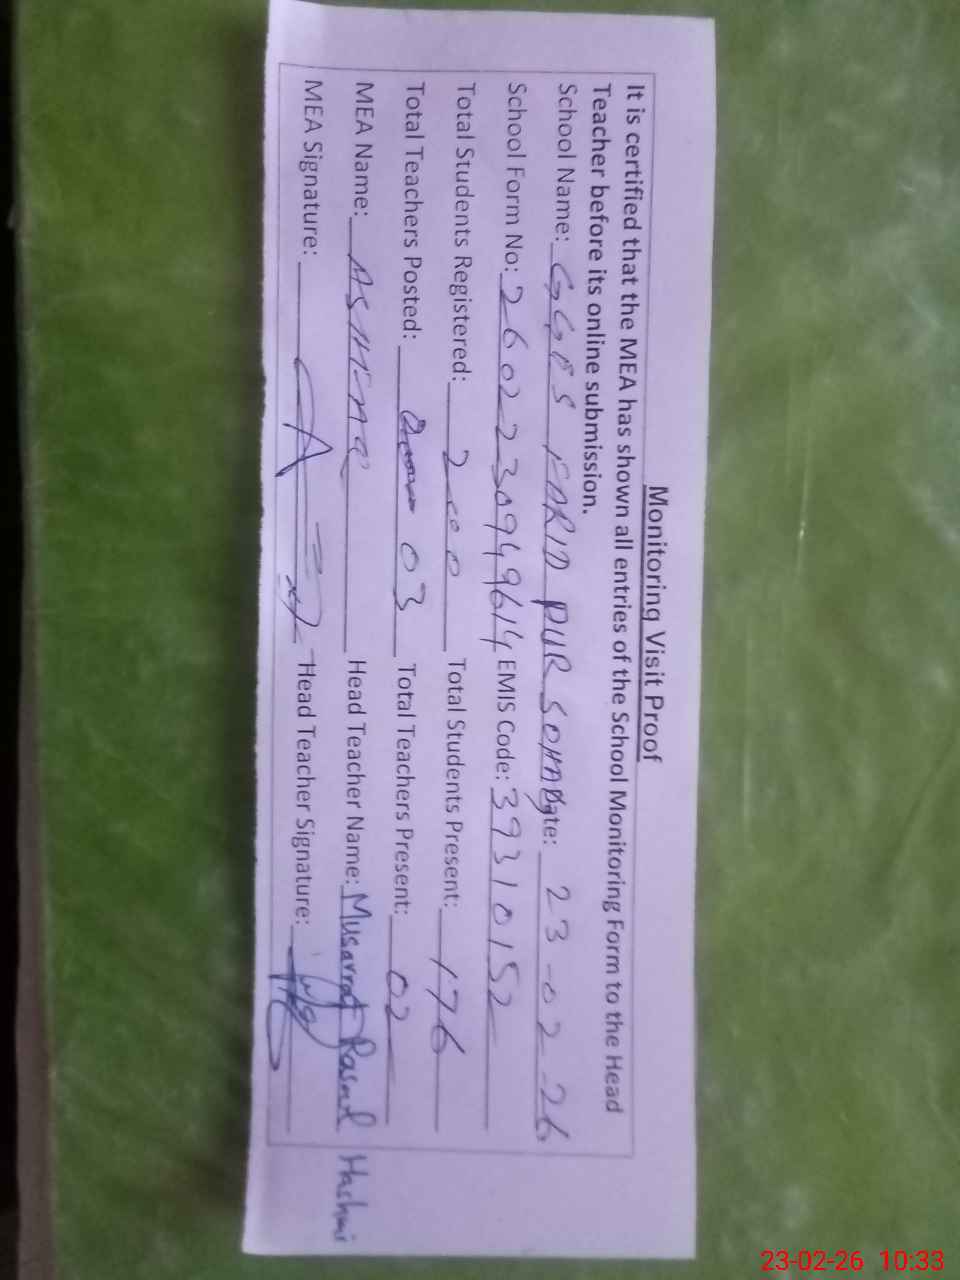 Monitoring Visit Proof
It is certified that the MEA has shown all entries of the School Monitoring Form to the Head
Teacher before its online submission.
School Name: GGES FARID PUR SOHA Date: 23-02-26
School Form No: 2602230949614 EMIS Code: 39310152
Total Students Registered: 200 Total Students Present: 176
Total Teachers Posted: 03 Total Teachers Present: 02
MEA Name: Asmina Head Teacher Name: Musarrat Rasool Hashmi
MEA Signature: Head Teacher Signature:
23-02-26 10:33